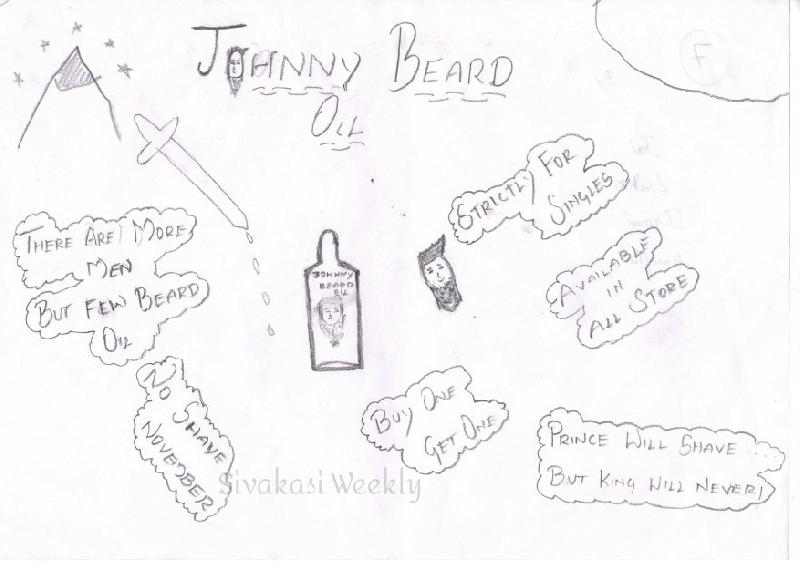 JOHNNY BEARD
OIL
F
STRICTLY FOR
SINGLES
THERE ARE MORE
MEN
BUT FEW BEARD
OIL
AVAILABLE
IN
ALL STORE
JOHNNY
BEARD
OIL
NO SHAVE
NOVEMBER
BUY ONE
GET ONE
PRINCE WILL SHAVE ....
BUT KING WILL NEVER!
Sivakasi Weekly